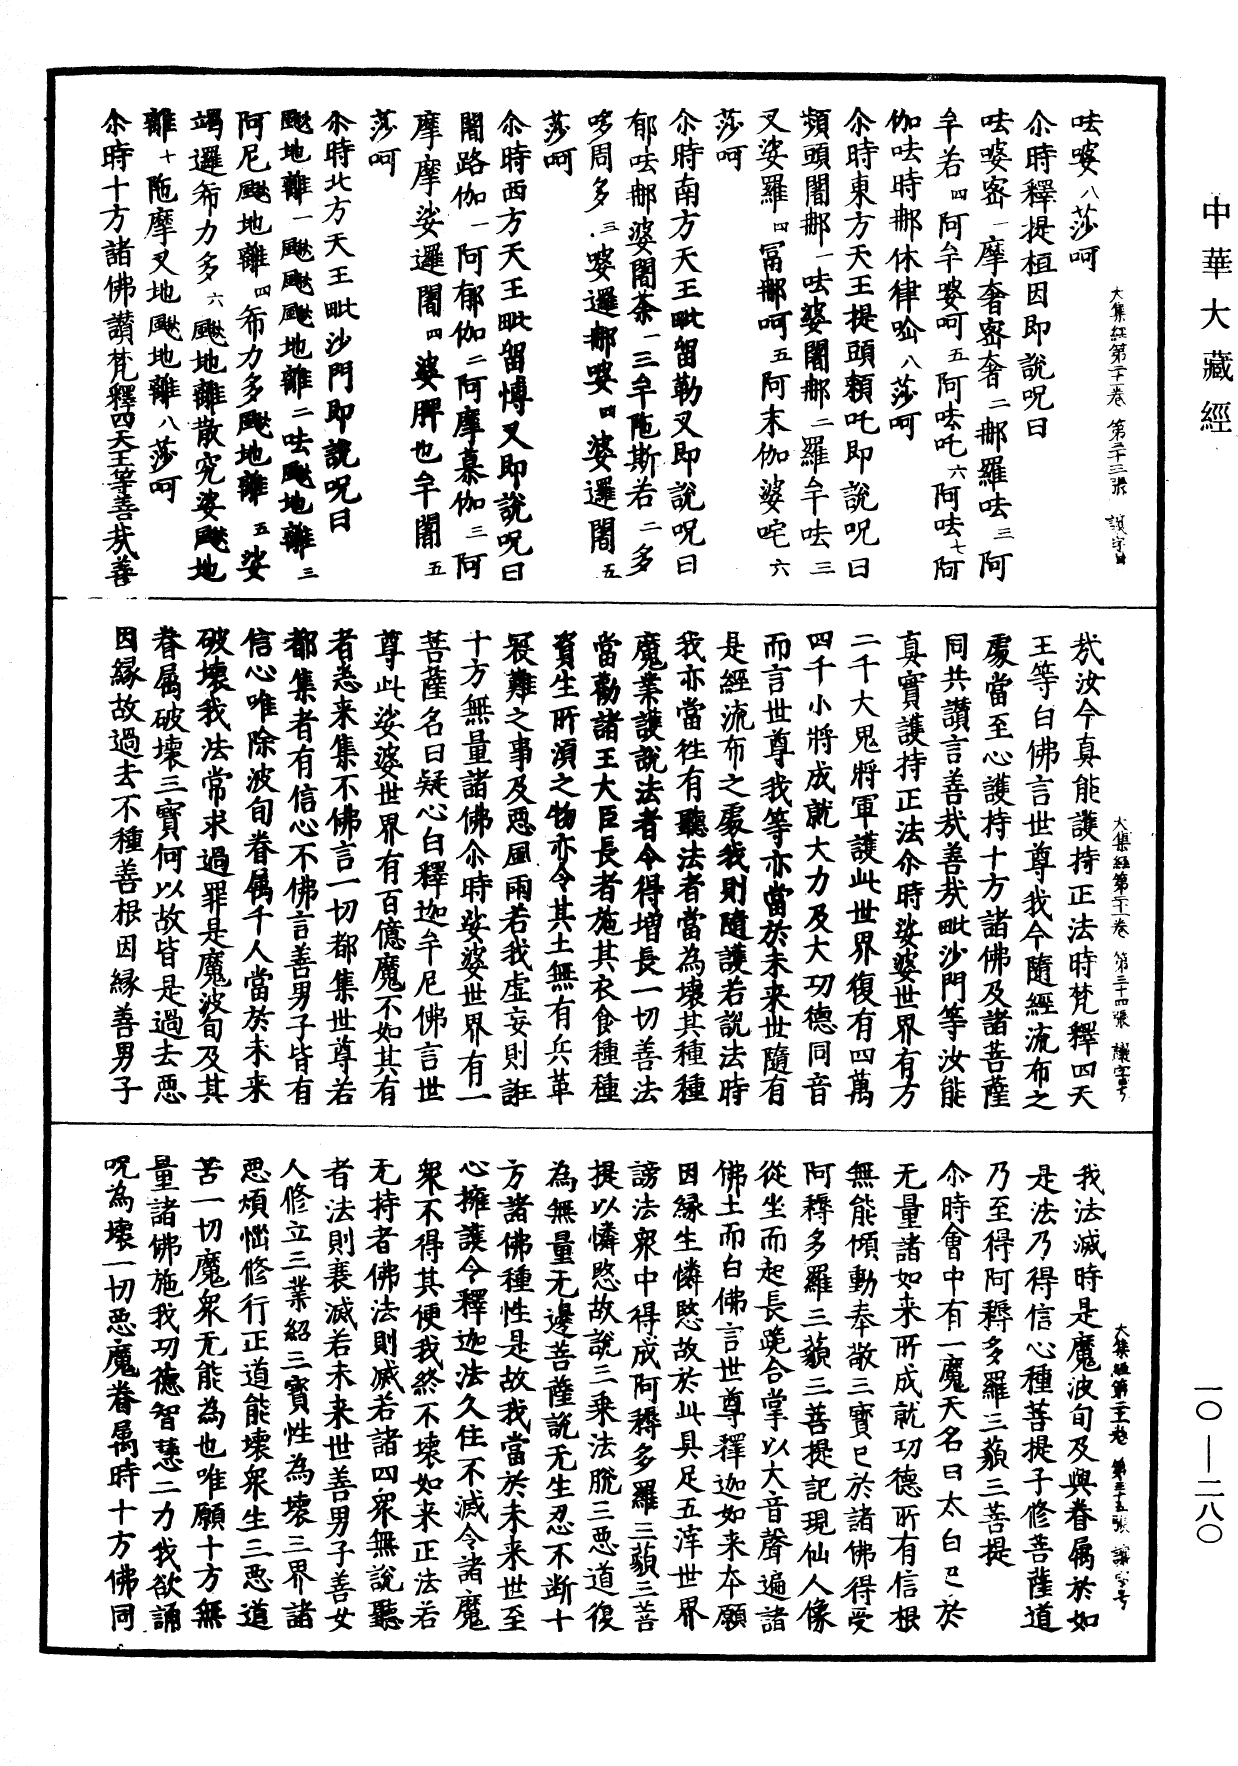 中華大藏經
大集經第二十一卷 第二十三張 讓字号
呿婆八莎呵
尒時釋提桓因即說呪曰
呿婆密一摩奢密奢二郍羅呿三阿
牟若四阿牟婆呵五阿呿吒六阿呿七阿
伽呿時郍休律喻八莎呵
尒時東方天王提頭頼吒即說呪曰
頻頭闍郍一呿婆闍郍二羅牟呿三
叉娑羅四冨郍呵五阿末伽婆咤六
莎呵
尒時南方天王毗留勒叉即說呪曰
郁呿郍婆闍荼一三牟陁斯若二多
哆周多三婆邏郍婆四婆邏闍五
莎呵
尒時西方天王毗留博叉即說呪曰
闍路伽一阿郁伽二阿摩慕伽三阿
摩摩娑邏闍四婆脾也牟闍五
莎呵
尒時北方天王毗沙門即說呪曰
颰地離一颰颰颰地離二呿颰地離三
阿尼颰地離四希力多颰地離五娑
竭邏希力多六颰地離散究婆颰地
離十陁摩叉地颰地離八莎呵
尒時十方諸佛讃梵釋四天王等善㢤善
大集經第二十一卷 第二十四張 讓字号
㢤汝今真能護持正法時梵釋四天
王等白佛言世尊我今隨經流布之
處當至心護持十方諸佛及諸菩薩
同共讃言善㢤善㢤毗沙門等汝能
真實護持正法尒時娑婆世界有方
二千大鬼將軍護此世界復有四萬
四千小將成就大力及大功德同音
而言世尊我等亦當於未來世隨有
是經流布之處我則隨護若說法時
我亦當徃有聽法者當為壞其種種
魔業護說法者令得增長一切善法
當勸諸王大臣長者施其衣食種種
資生所湏之物亦令其土無有兵革
冣難之事及惡風雨若我虛妄則誑
十方無量諸佛尒時娑婆世界有一
菩薩名曰疑心白釋迦牟尼佛言世
尊此娑婆世界有百億魔不如其有
者悉來集不佛言一切都集世尊若
都集者有信心不佛言善男子皆有
信心唯除波旬眷属千人當於未來
破壞我法常求過罪是魔波旬及其
眷属破壞三寶何以故皆是過去惡
因縁故過去不種善根因縁善男子
大集經第二十一卷 第二十五張 讓字号
我法滅時是魔波旬及與眷属於如
是法乃得信心種菩提子修菩薩道
乃至得阿耨多羅三藐三菩提
尒時會中有一魔天名曰太白已於
无量諸如來所成就功德所有信根
無能傾動奉敬三寶已於諸佛得受
阿耨多羅三藐三菩提記現仙人像
從坐而起長跪合掌以大音聲遍諸
佛土而白佛言世尊釋迦如來本願
因縁生憐愍故於此具足五滓世界
謗法衆中得成阿耨多羅三藐三菩
提以憐愍故說三乘法脫三惡道復
為無量无邊菩薩說无生忍不断十
方諸佛種性是故我當於未來世至
心擁護令釋迦法久住不滅令諸魔
衆不得其便我終不壞如來正法若
无持者佛法則滅若諸四衆無說聽
者法則衰滅若未來世善男子善女
人修立三業紹三寶性為壞三界諸
惡煩惱修行正道能壞衆生三惡道
苦一切魔衆无能為也唯願十方無
量諸佛施我功德智慧二力我欲誦
呪為壞一切惡魔眷属時十方佛同
一〇—二八〇